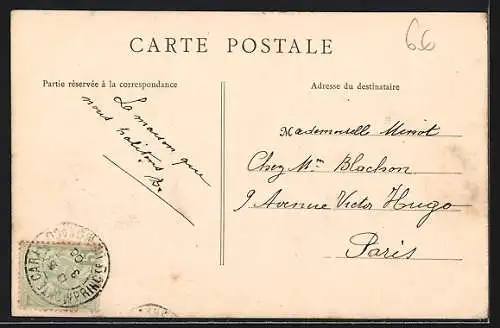 66
CARTE POSTALE
Partie réservée à la correspondance
Adresse du destinataire
La maison que
nous habitons
Mademoiselle Minot
Chez Mme Blachon
9 Avenue Victor Hugo
Paris